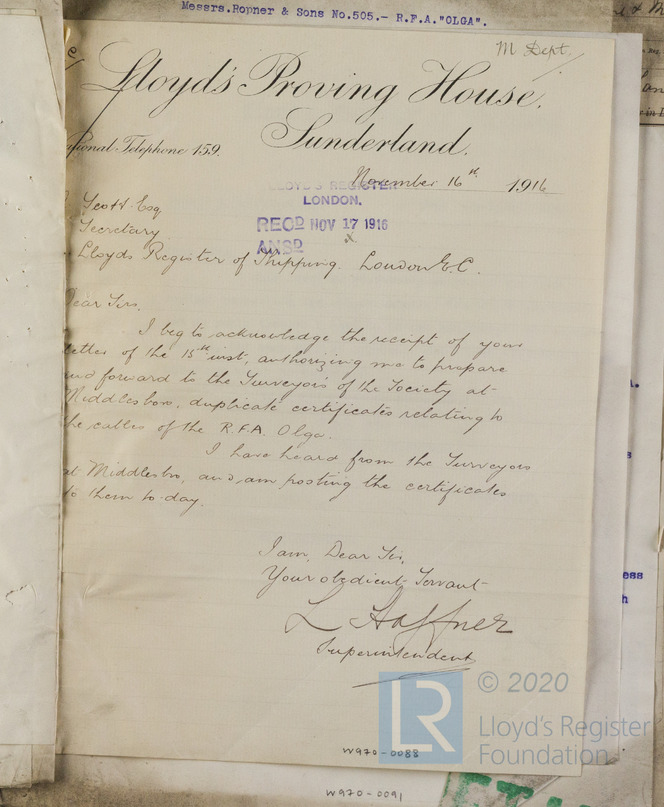 Messrs.Ropner & Sons No.505.- R.F.A."OLGA".
M Dept.
Lloyd's Proving House,
Sunderland.
ional Telephone 159.
November 16th 1916
LLOYD'S REGISTER
LONDON.
RECD NOV 17 1916
ANSD
Scott Esq
Secretary
Lloyds Register of Shipping. London E.C.
Dear Sir,
I beg to acknowledge the receipt of your
letter of the 15th inst, authorizing me to prepare
and forward to the Surveyors of the Society at
Middlesbro, duplicate certificates relating to
the cables of the R.F.A. Olga.
I have heard from the Surveyors
at Middlesbro, and am posting the certificates
to them to-day.
I am, Dear Sir,
Your obedient Servant
L Haffner
Superintendent
LR
© 2020
Lloyd's Register
Foundation
W970-0088
W970-0091
ess
h